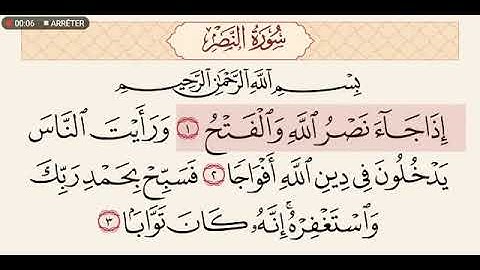 00:06 ARRÊTER
سُورَةُ النَّصْرِ
بِسْمِ اللَّهِ الرَّحْمَٰنِ الرَّحِيمِ
إِذَا جَآءَ نَصْرُ ٱللَّهِ وَٱلْفَتْحُ ١ وَرَأَيْتَ ٱلنَّاسَ
يَدْخُلُونَ فِي دِينِ ٱللَّهِ أَفْوَاجًا ٢ فَسَبِّحْ بِحَمْدِ رَبِّكَ
وَٱسْتَغْفِرْهُ ۚ إِنَّهُۥ كَانَ تَوَّابًۢا ٣